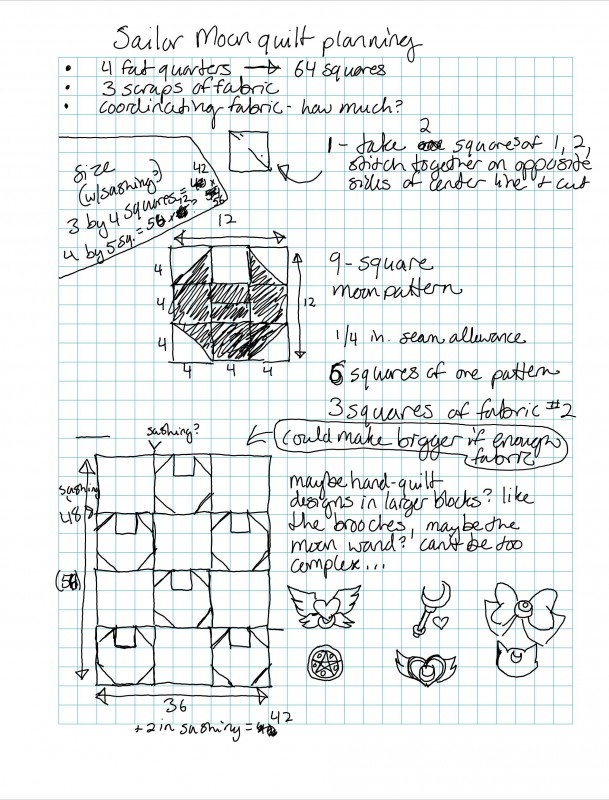 Sailor Moon quilt planning
• 4 fat quarters → 64 squares
• 3 scraps of fabric
• coordinating fabric - how much?
2
1 - take squares of 1, 2,
stitch together on opposite
sides of center line & cut
size
(w/sashing?)
42
3 by 4 squares =
56
4 by 5 sq. = 56 x
12
4
4
4
12
4 4 4
9-square
moon pattern
1/4 in. seam allowance
6 squares of one pattern
3 squares of fabric #2
could make bigger if enough
fabric
sashing?
sashing
48
(56)
36
+2 in sashing = 42
maybe hand-quilt
designs in larger blocks? like
the brooches, maybe the
moon wand? can't be too
complex...